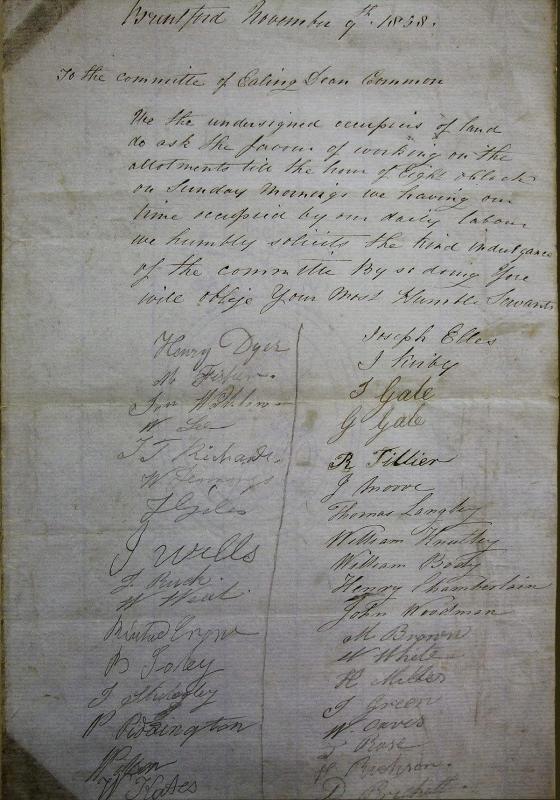 Brentford November 9th 1838.
To the committe of Ealing Dean Common
We the undersigned occupiers of land
do ask the favour of working on the
allotments till the hour of Eight oblock
on Sunday mornings we having our
time occupied by our daily labour
we humbly solicits the kind indulgance
of the committe By so doing You
will oblige Your Most Humble Servants
Henry Dyer
M Fisher
W
W Lee
J T Richards
W Jennings
J Giles
J Wells
J Buck
W West
Richard Crow
B Foley
J
P Piddington
W Kates
Joseph Elles
J Kirby
J Gale
G Gale
R Tillier
J Moore
Thomas Langley
William Huntley
William Body
Henry Chamberlain
John Woodman
M Brown
W White
H Miller
J Green
W Daves
J Rose
H
D